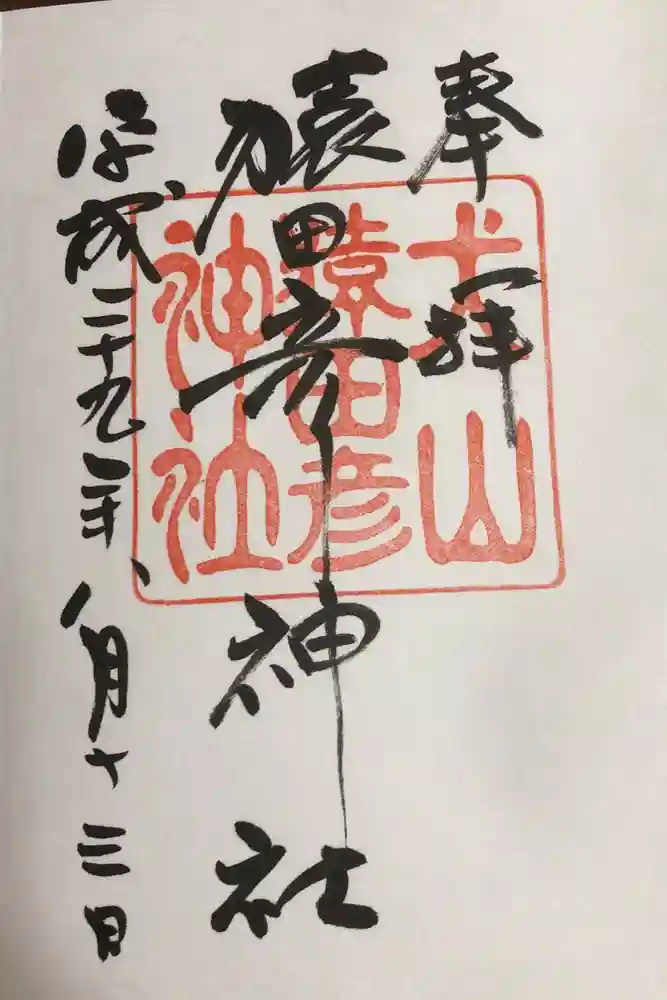 奉拝
猿田彦神社
平成二十九年八月十三日
犬山
猿田彦
神社